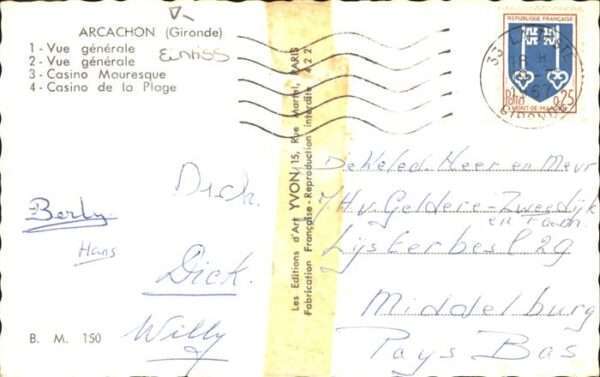 ARCACHON (Gironde)
1 - Vue générale
2 - Vue générale
3 - Casino Mauresque
4 - Casino de la Plage
Dick.
Berly
Hans
Dick.
Willy
B. M. 150
Les Editions d'Art YVON, 15, Rue Martel, PARIS
Fabrication Française - Reproduction interdite A 2 2
REPUBLIQUE FRANÇAISE
0,25
MONT-DE-MARSAN
GIRONDE
De Weled. Heer en Mevr
J.H.v. Geldere-Zweedijk
en Fam.
Lijsterbesl 29
Middelburg
Pays Bas